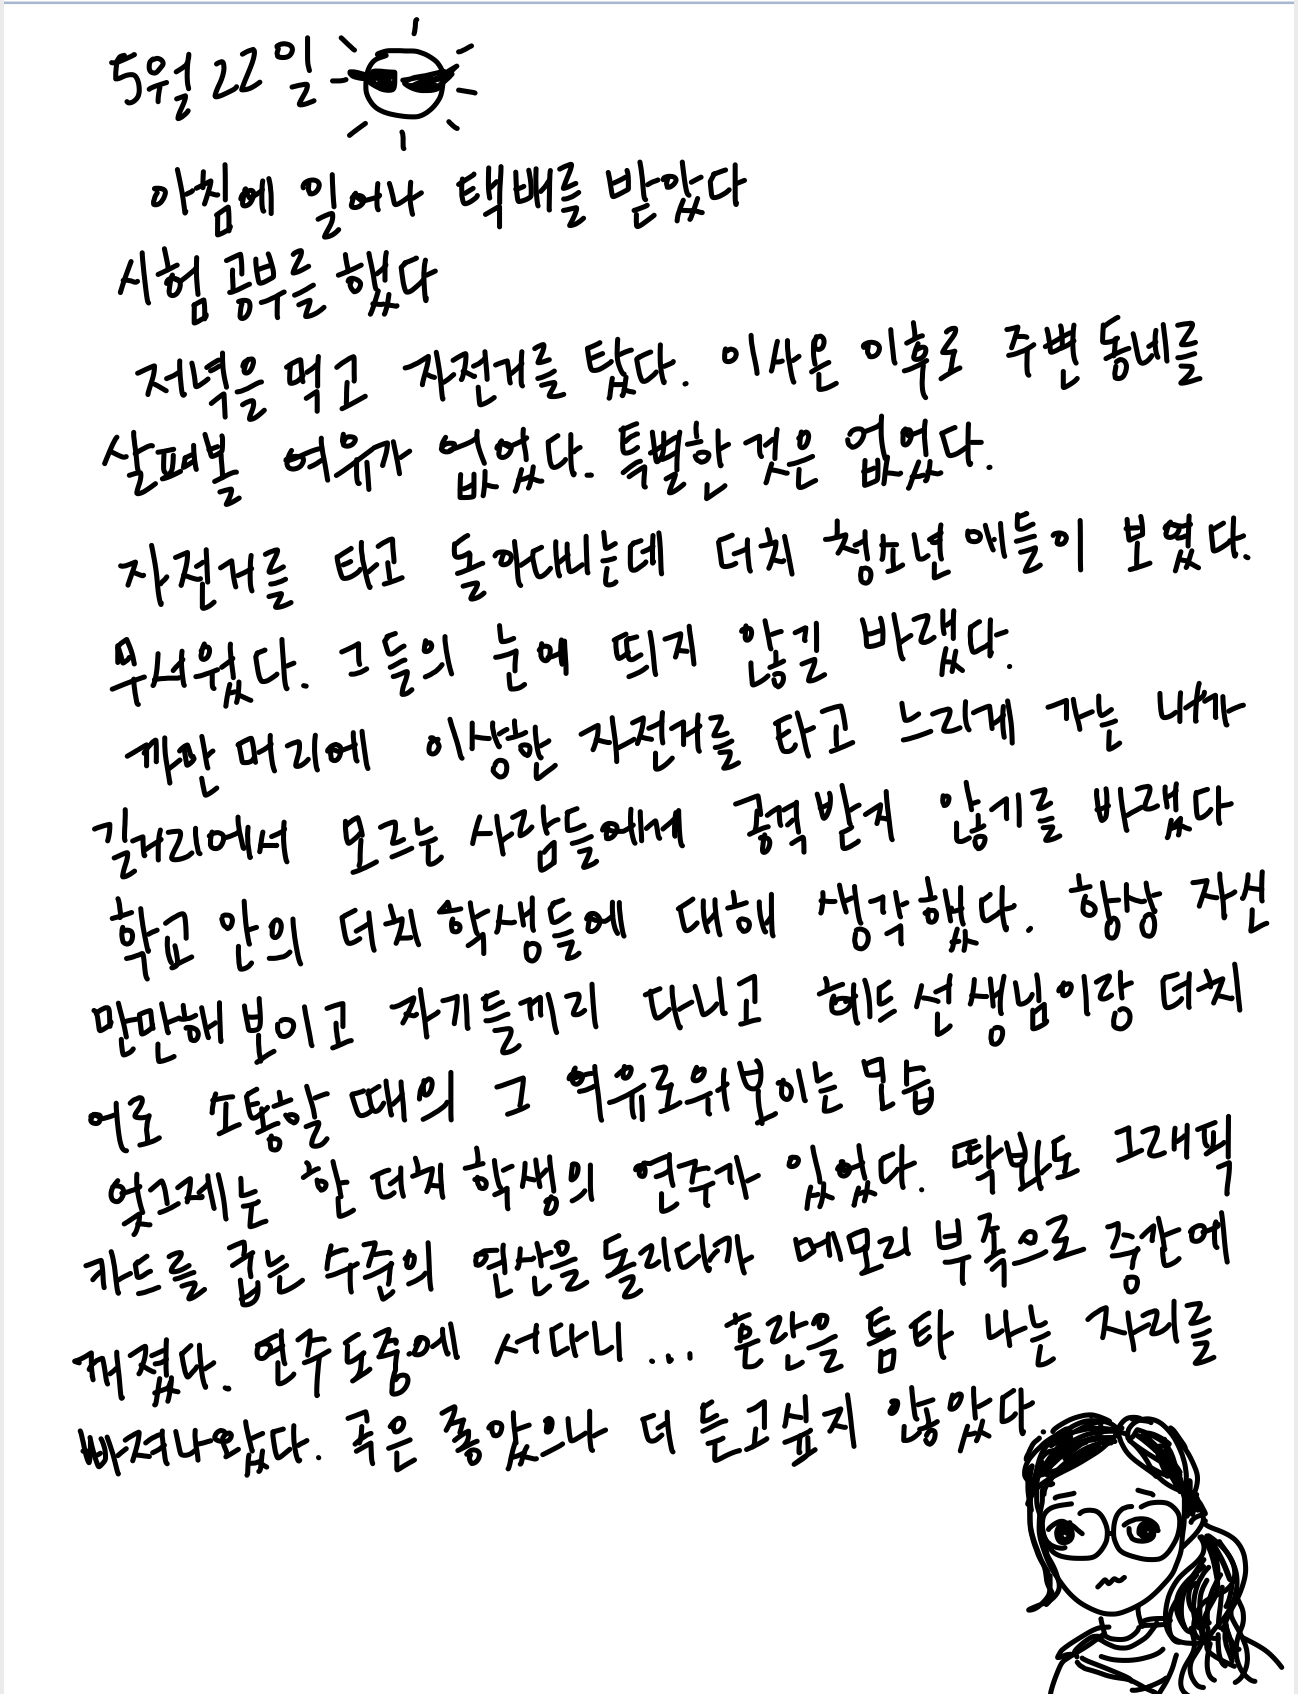 5월 22일
아침에 일어나 택배를 받았다
시험 공부를 했다
저녁을 먹고 자전거를 탔다. 이사온 이후로 주변 동네를
살펴볼 여유가 없었다. 특별한 것은 없었다.
자전거를 타고 돌아다니는데 더치 청소년 애들이 보였다.
무서웠다. 그들의 눈에 띄지 않길 바랬다.
까만 머리에 이상한 자전거를 타고 느리게 가는 내가
길거리에서 모르는 사람들에게 공격받지 않기를 바랬다
학교 안의 더치 학생들에 대해 생각했다. 항상 자신
만만해 보이고 자기들끼리 다니고 헤드 선생님이랑 더치
어로 소통할 때의 그 여유로워보이는 모습
엊그제는 한 더치 학생의 연주가 있었다. 딱봐도 그래픽
카드를 굽는 수준의 연산을 돌리다가 메모리 부족으로 중간에
꺼졌다. 연주 도중에 서다니... 혼란을 틈타 나는 자리를
빠져나왔다. 곡은 좋았으나 더 듣고싶지 않았다.